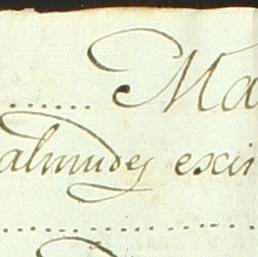 Ma
almudes exi